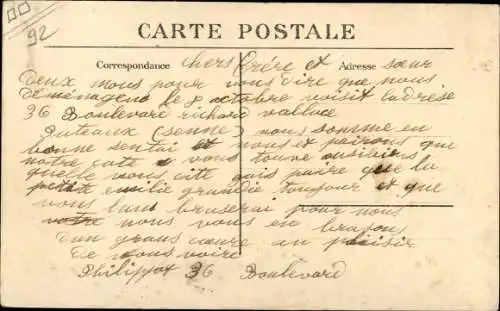 92
CARTE POSTALE
Correspondance Adresse
chers frére et sœur
deux mous pour vous dire que nous
déménagens le 8 octobre voisit ladrése
36 Boulevard richard vallace
Puteaux (senne) nous somme en
bonne sentai et nous espairons que
notre cote a vous touve ausi bien
quelle vous cite que la
petite emilie grandie toujour et que
vous lans bruserai pour nous
nous vous en brason
dun grans cœure au plaisir
de vous voire
Philippot 36 Boulevard